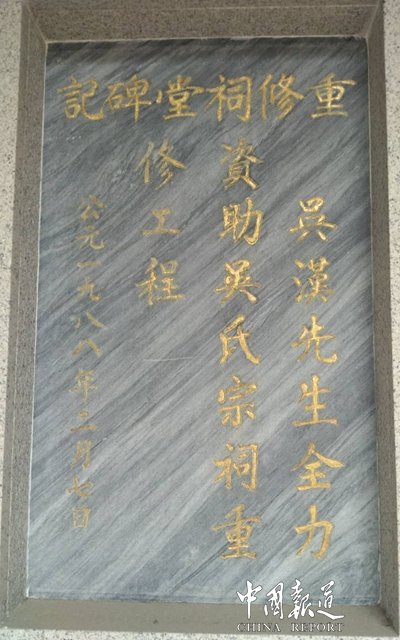 重修祠堂碑記
吳漢先生全力
資助吳氏宗祠重
修工程
公元一九八八年二月七日
中國報道
CHINA REPORT